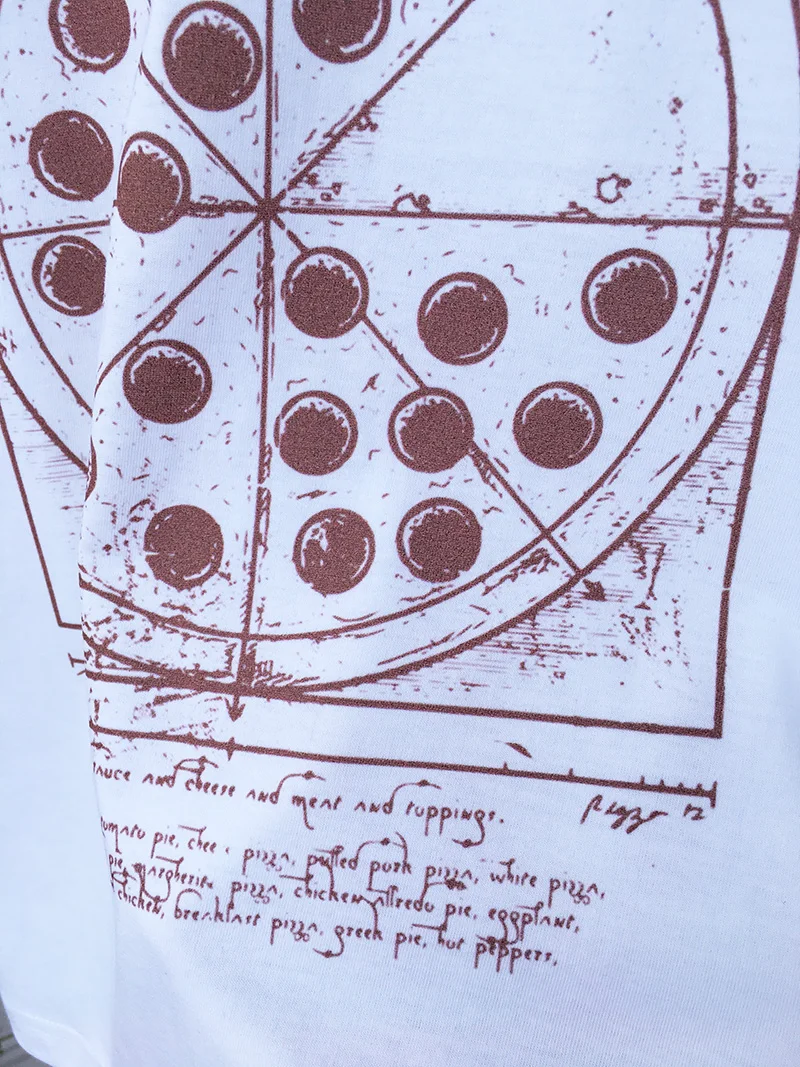 sauce and cheese and meat and toppings.
pizza 12
tomato pie, chee e pizza, pulled pork pizza, white pizza,
pie, margherita pizza, chicken alfredo pie, eggplant,
chicken, breakfast pizza, greek pie, hot peppers,